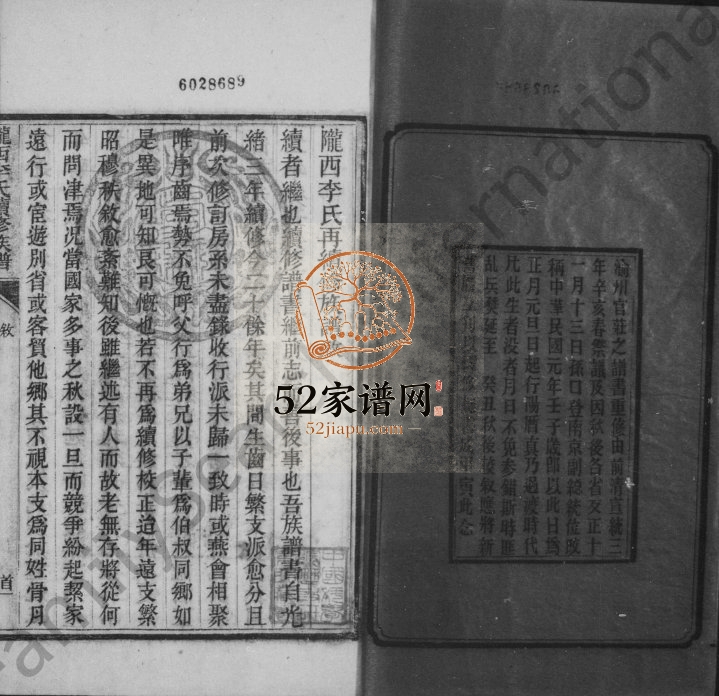 6028689
渝州官莊之譜書重修由前清宣統三
年辛亥春祭議及因秋後各省反正十
一月十三日孫口登南京副總統位改
稱中華民國元年壬子歲即以此日為
正月元旦日起行陽曆真乃過渡時代
凡此生者沒者月日不免參錯斯時匪
亂兵燹延至 癸丑秋後
敘應將新
寅此念
隴西李氏再
續者繼也續修譜書繼前志
後事也吾族譜書自光
緒三年續修今三十餘年矣其間生齒日繁支派愈分且
前次修訂房系未盡錄收行派未歸一致時或燕會相聚
唯序齒焉勢不免呼父行為弟兄以子輩為伯叔同鄉如
是異地可知良可慨也若不再為續修校正迨年遠支繁
昭穆秩敘愈紊難知後雖繼述有人而故老無存將從何
而問津焉况當國家多事之秋設一旦而競爭紛起絜家
遠行或宦遊別省或客貿他鄉其不視本支為同姓骨肉
隴西李氏續修族譜
敘
首
52家谱网
52jiapu.com
FamilySearch International